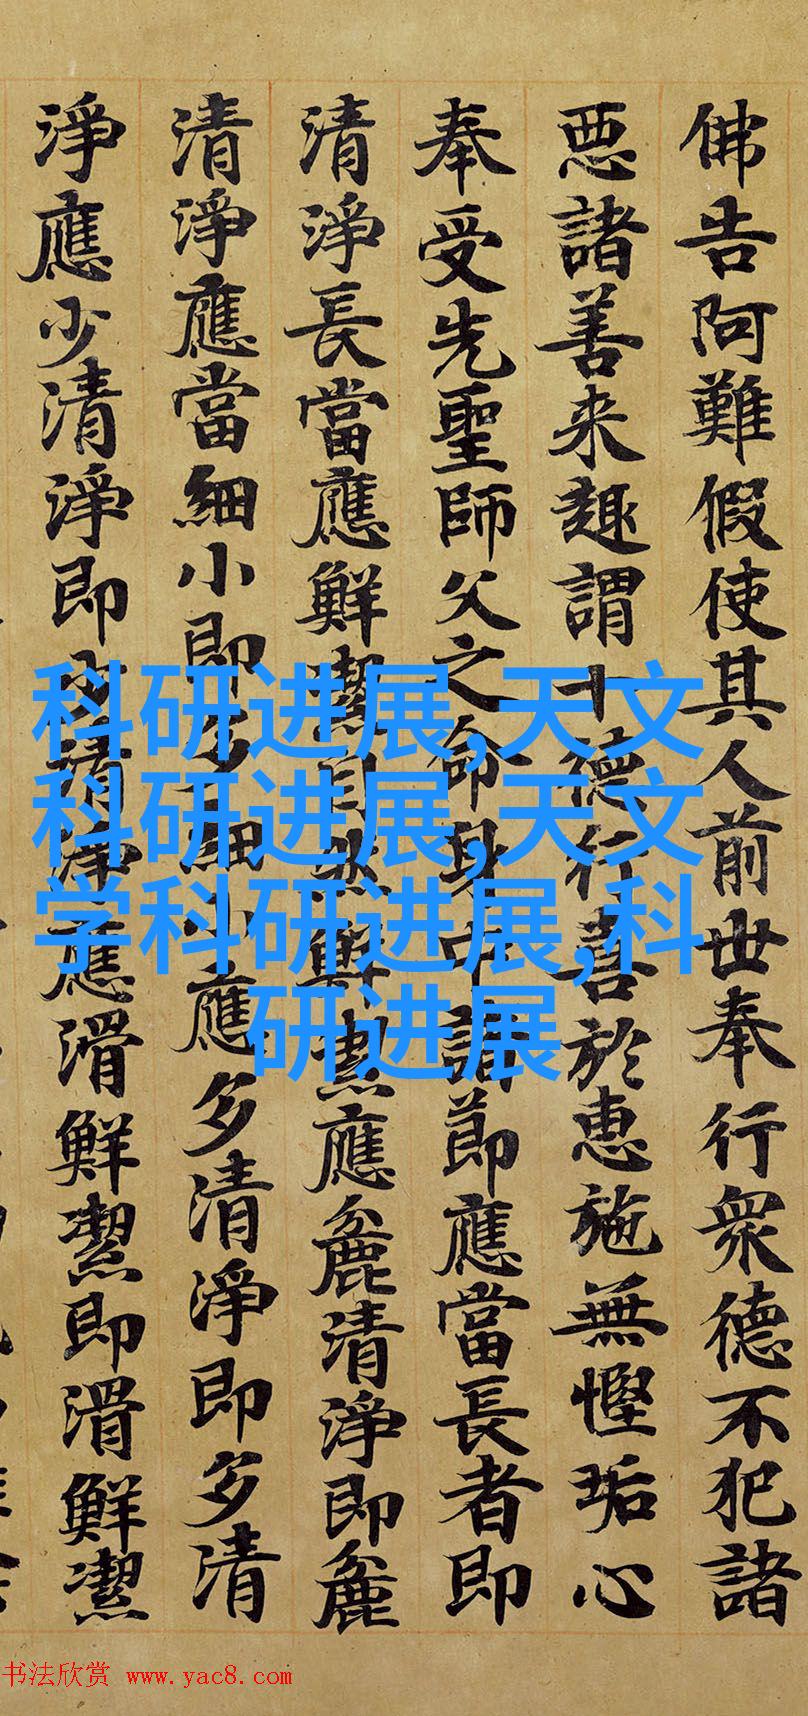 佛告阿難假使其人前世奉行衆德不犯諸
惡諸善来趣謂十德行喜於惠施無慳垢心
奉受先聖師父之命身中諸節應當長者即
清淨長當應鮮潔自然鮮潔應麁清淨即麁
清淨應當細小即細小應多清淨即多清
淨應少清淨即少清淨應滑鮮潔即滑鮮潔
科研进展,天文
科研进展,天文
学科研进展,科
研进展
书法欣赏 www.yac8.com